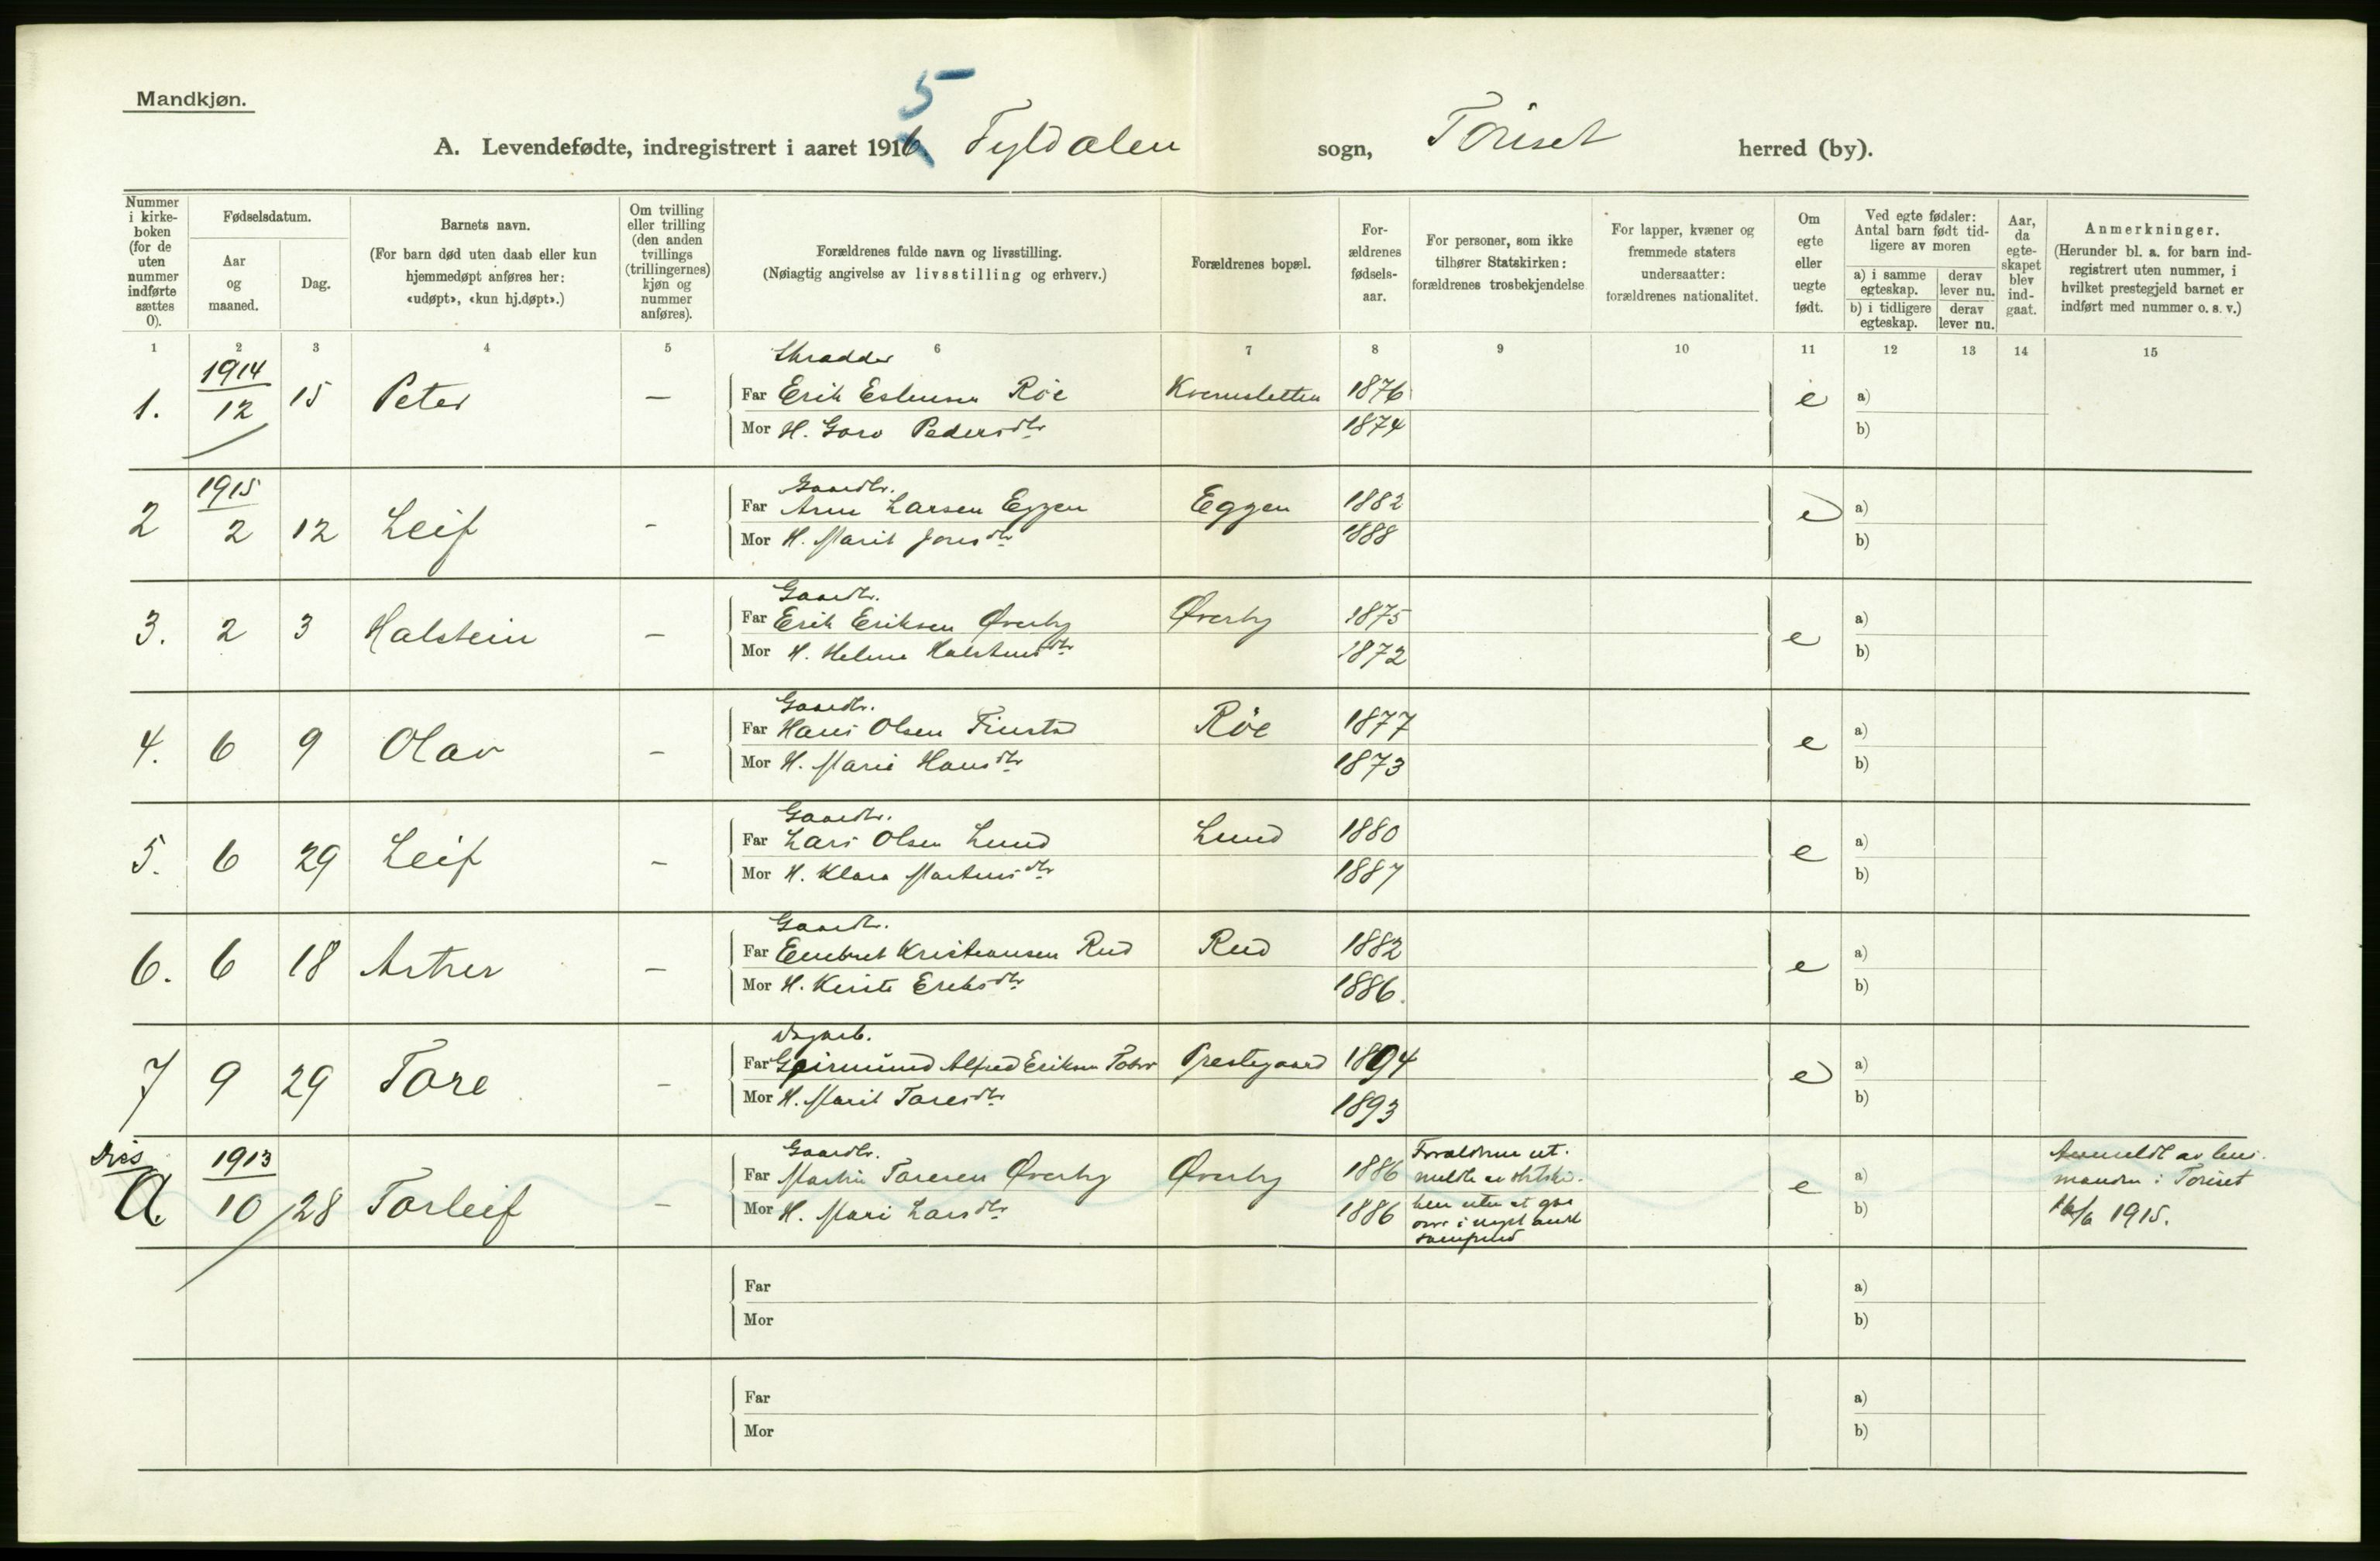 Mandkjøn.
5
A. Levendefødte, indregistrert i aaret 1916. Tyldalen sogn, Tönset herred (by).
Nummer i kirkeboken (for de uten nummer indførte sættes 0).
Fødselsdatum.
Aar og maaned.
Dag.
Barnets navn.
(For barn død uten daab eller kun hjemmedøpt anføres her: «udøpt», «kun hj.døpt».)
Om tvilling eller trilling (den anden tvillings (trillingernes) kjøn og nummer anføres).
Forældrenes fulde navn og livsstilling.
(Nøiagtig angivelse av livsstilling og erhverv.)
Forældrenes bopæl.
Forældrenes fødselsaar.
For personer, som ikke tilhører Statskirken: forældrenes trosbekjendelse
For lapper, kvæner og fremmede staters undersaatter: forældrenes nationalitet.
Om egte eller uegte født.
Ved egte fødsler: Antal barn født tidligere av moren
a) i samme egteskap.
derav lever nu.
b) i tidligere egteskap.
derav lever nu.
Aar, da egteskapet blev indgaat.
Anmerkninger.
(Herunder bl. a. for barn indregistrert uten nummer, i hvilket prestegjeld barnet er indført med nummer o. s. v.)
1 2 3 4 5 6 7 8 9 10 11 12 13 14 15
1914
Skradder
1. 12 15 Peter — Far Erik Estensen Röe Kvernsletten 1876 e a)
Mor H. Goro Pedersdtr 1874 b)
1915
Gaardbr.
2 2 12 Leif - Far Arne Larsen Eggen Eggen 1882 e a)
Mor H. Marit Jonsdtr 1888 b)
Gaardbr.
3. 2 3 Halstein — Far Erik Eriksen Øverby Øverby 1875 e a)
Mor H. Helene Halstensdtr 1872 b)
Gaardbr.
4. 6 9 Olav — Far Hans Olsen Finstad Röe 1877 e a)
Mor H. Marie Hansdtr 1873 b)
Gaardbr.
5. 6 29 Leif — Far Lars Olsen Lund Lund 1880 e a)
Mor H. Klara Martinsdtr 1887 b)
Gaardbr.
6. 6 18 Artur — Far Embret Kristiansen Rud Rud 1882 e a)
Mor H. Kirsti Eriksdtr 1886. b)
Dagarb.
7 9 29 Tore - Far Geirmund Alfred Eriksen Prestegaard 1894 e a)
Mor H. Marit Toresdtr 1893 b)
Dis
1913
Gaardbr.
A. 10 28 Torleif — Far Martin Toresen Øverby Øverby 1886 e a)
Mor H. Mari Larsdtr 1886 b)
Forældrene ut-
meldt av statskir-
ken uten at gaa
over i nyt
samfund
Anmeldt av lens-
manden i Tönset
16/6 1915.
Far a)
Mor b)
Far a)
Mor b)